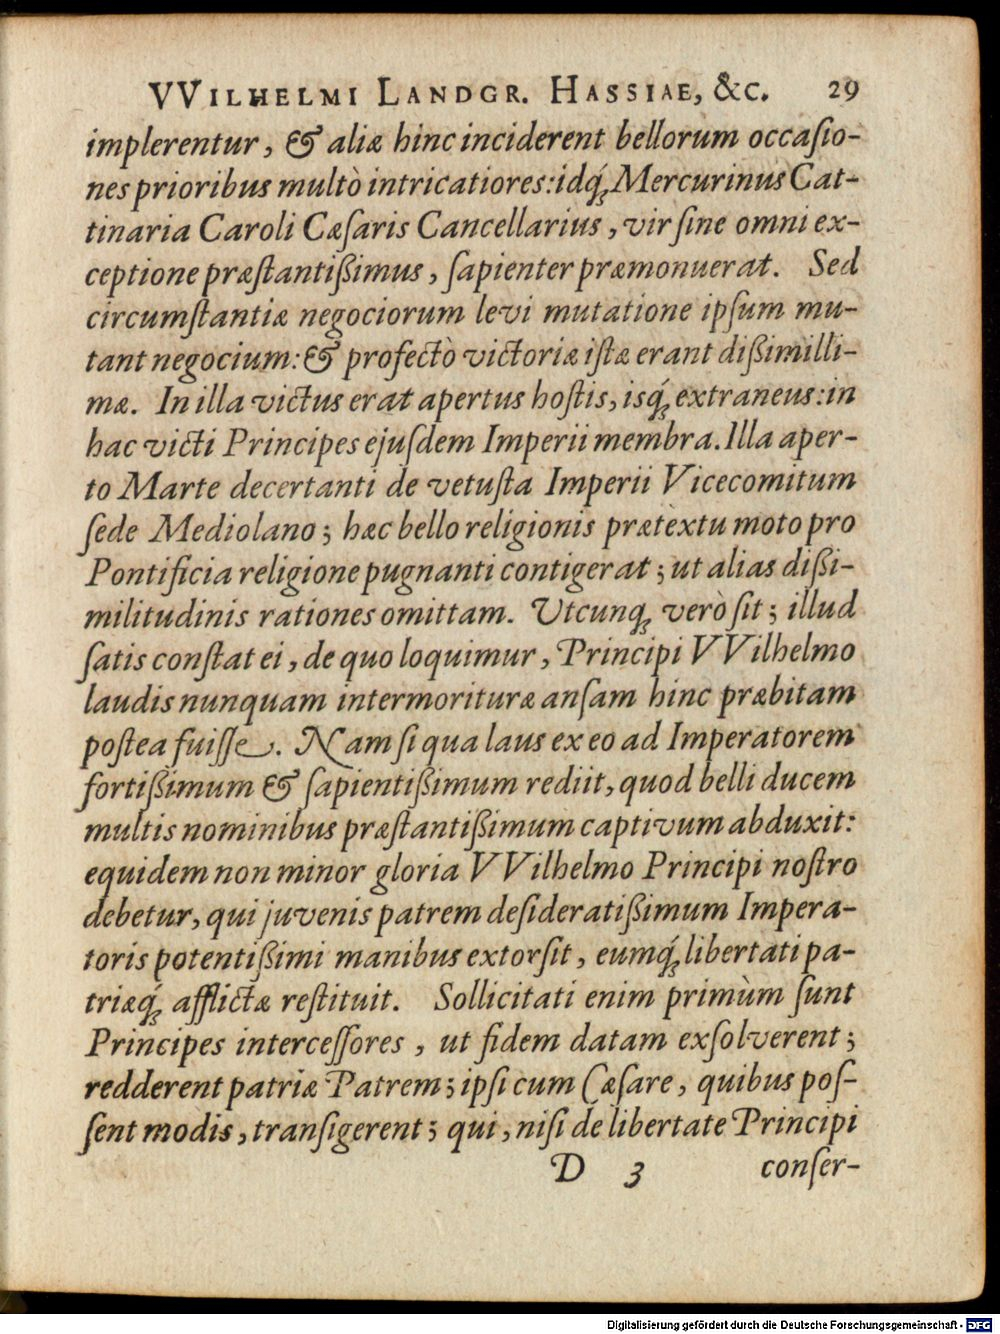 VVILHELMI LANDGR. HASSIAE, &C. 29
implerentur, & aliæ hinc inciderent bellorum occaſio-
nes prioribus multò intricatiores: idq́ꝫ Mercurinus Cat-
tinaria Caroli Cæſaris Cancellarius, vir ſine omni ex-
ceptione præſtantißimus, ſapienter præmonuerat. Sed
circumſtantiæ negociorum levi mutatione ipſum mu-
tant negocium: & profectò victoriæ iſtæ erant dißimilli-
mæ. In illa victus erat apertus hoſtis, isq́ꝫ extraneus: in
hac victi Principes ejuſdem Imperii membra. Illa aper-
to Marte decertanti de vetuſta Imperii Vicecomitum
ſede Mediolano; hæc bello religionis prætextu moto pro
Pontificia religione pugnanti contigerat; ut alias dißi-
militudinis rationes omittam. Utcunqꝫ verò ſit; illud
ſatis conſtat ei, de quo loquimur, Principi VVilhelmo
laudis nunquam intermorituræ anſam hinc præbitam
poſtea fuiſſe. Nam ſi qua laus ex eo ad Imperatorem
fortißimum & ſapientißimum rediit, quod belli ducem
multis nominibus præſtantißimum captivum abduxit:
equidem non minor gloria VVilhelmo Principi noſtro
debetur, qui juvenis patrem deſideratißimum Impera-
toris potentißimi manibus extorſit, eumq́ꝫ libertati pa-
triæq́ꝫ afflictæ reſtituit. Sollicitati enim primùm ſunt
Principes interceſſores, ut fidem datam exſolverent;
redderent patriæ Patrem; ipſi cum Cæſare, quibus poſ-
ſent modis, tranſigerent; qui, niſi de libertate Principi
D 3 conſer-
Digitalisierung gefördert durch die Deutsche Forschungsgemeinschaft - DFG